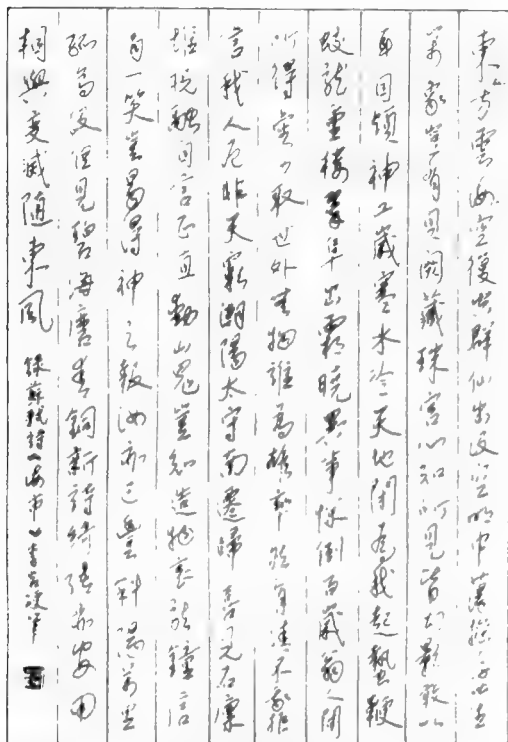 東方雲海空復空群仙出没空明中蕩摇浮世生
萬象豈有貝闕藏珠宫心知所見皆幻影敢以
耳目煩神工歲寒水冷天地閉爲我起蟄鞭
蛟龍重樓翠阜出霜曉異事惊倒百歲翁人間
所得容力取世外無物誰爲雄率然有請不我拒
信我人厄非天窮潮陽太守南遷歸喜見石廩
堆祝融自言正直動山鬼豈知造物哀龍鐘信
眉一笑豈易得神之報汝亦已豐斜陽萬里
孤鳥没但見碧海磨青銅新詩綺語亦安用
相與變滅随東風 録蘇軾詩《海市》李